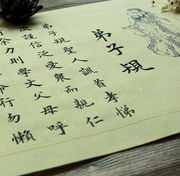 弟子規
弟子規聖人訓首孝悌
謹信泛愛眾而親仁
力則學文父母呼
行勿懶